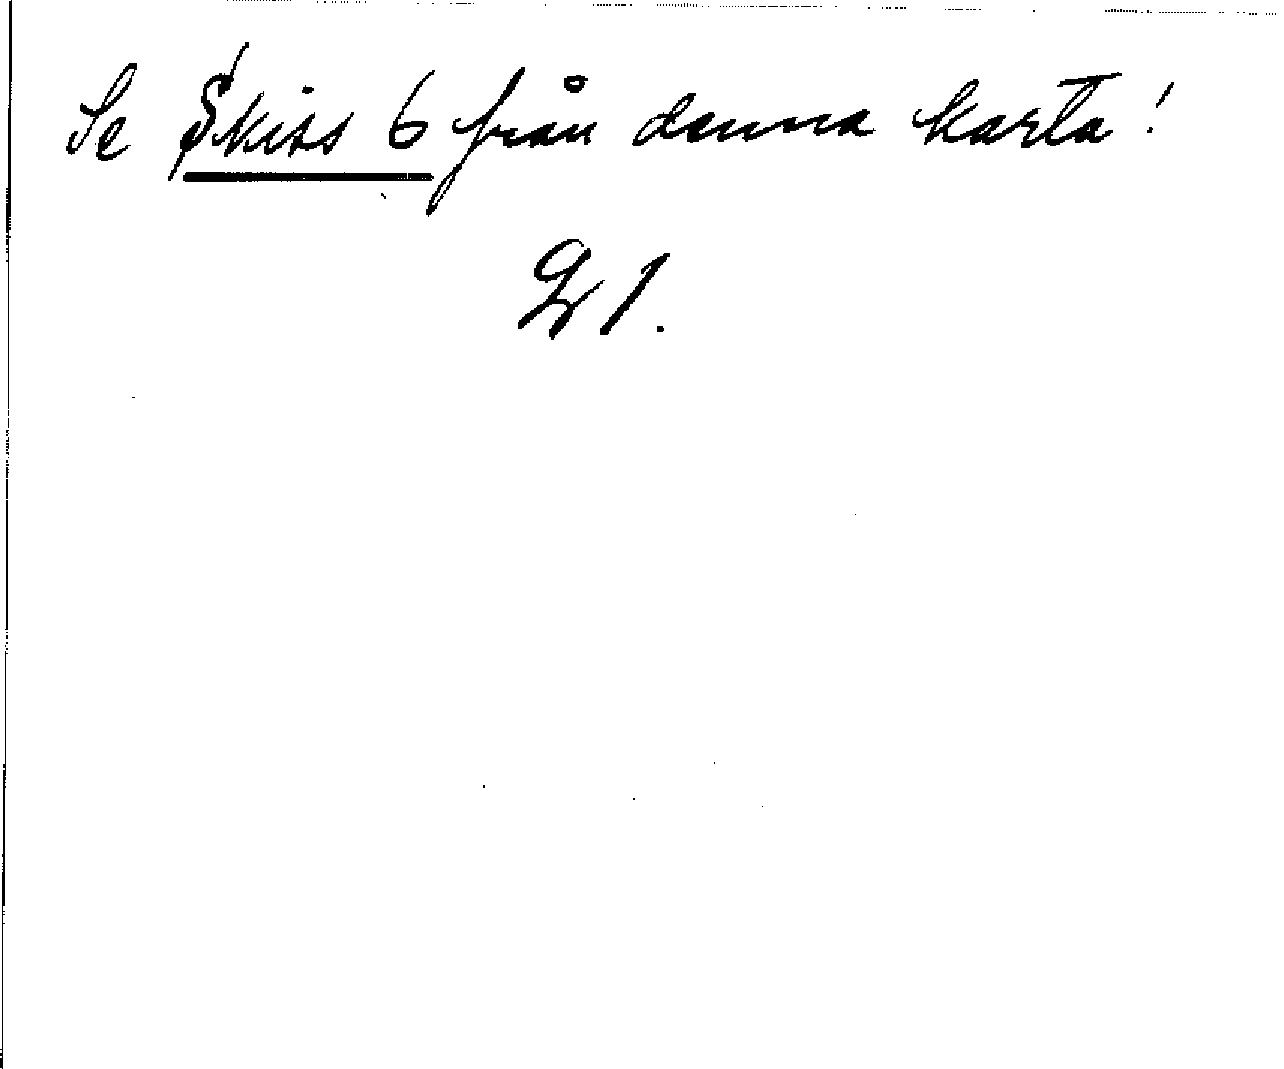 Se Skiss 6 från denna karta!